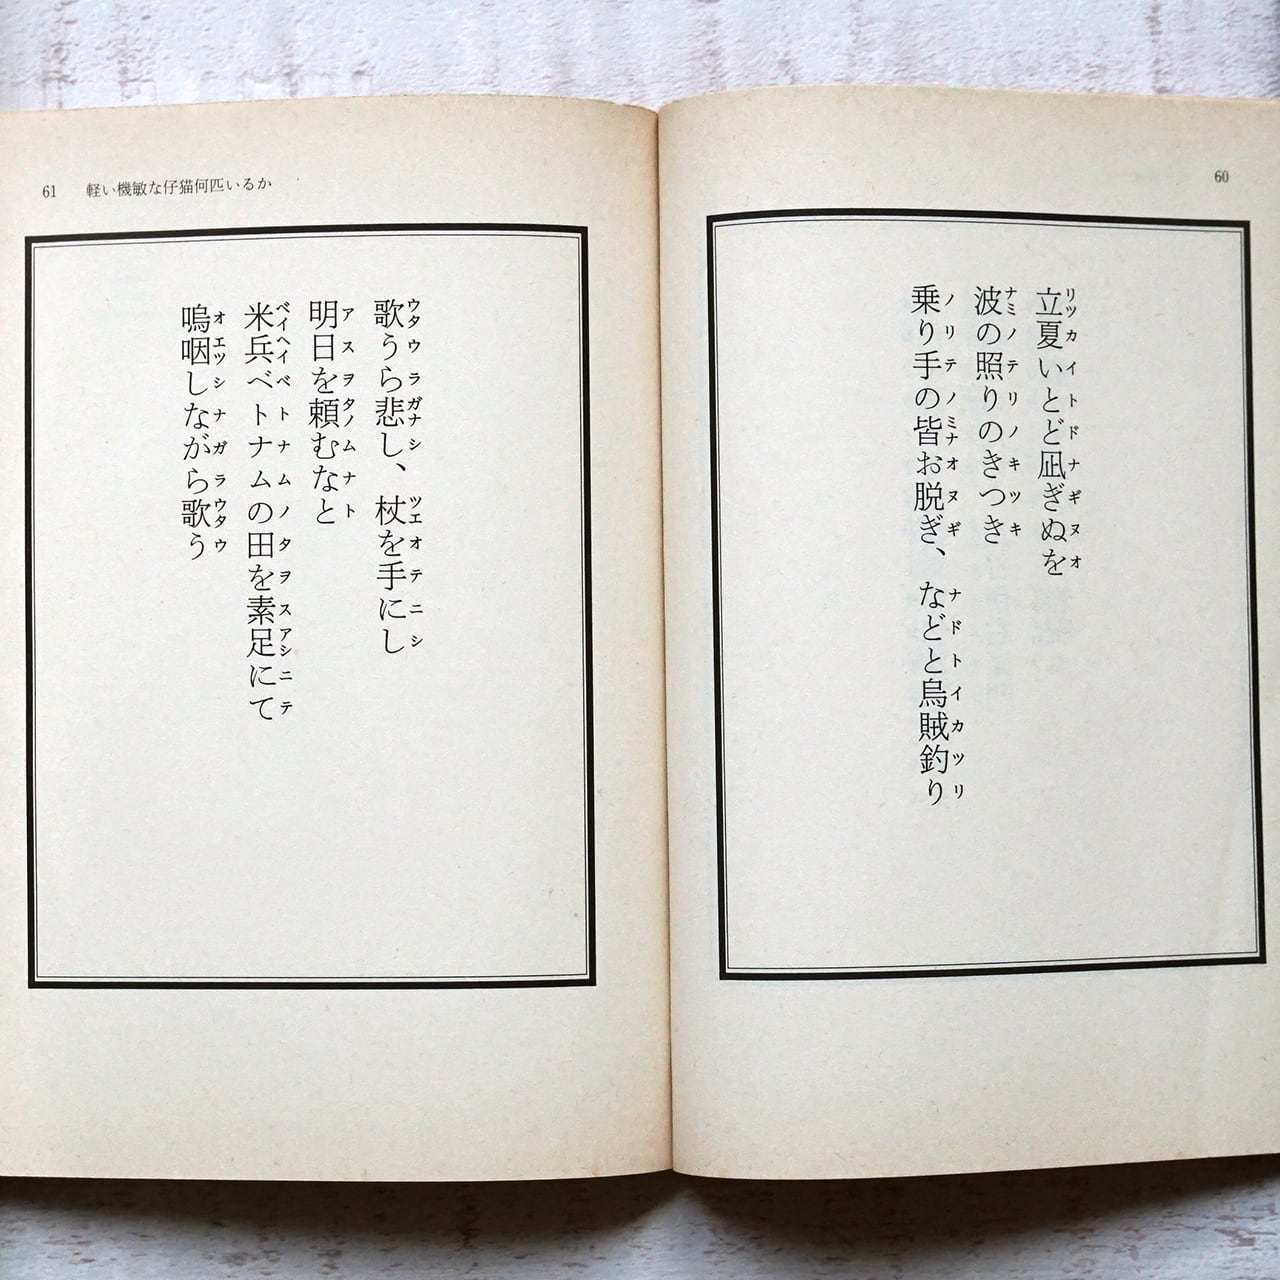 60
立夏いとど凪ぎぬを
リツカイトドナギヌオ
波の照りのきつき
ナミノテリノキツキ
乗り手の皆お脱ぎ、などと烏賊釣り
ノリテノミナオヌギナドトイカツリ
61 軽い機敏な仔猫何匹いるか
歌うら悲し、杖を手にし
ウタウラガナシツエオテニシ
明日を頼むなと
アスヲタノムナト
米兵ベトナムの田を素足にて
ベイヘイベトナムノタヲスアシニテ
嗚咽しながら歌う
オエッシナガラウタウ